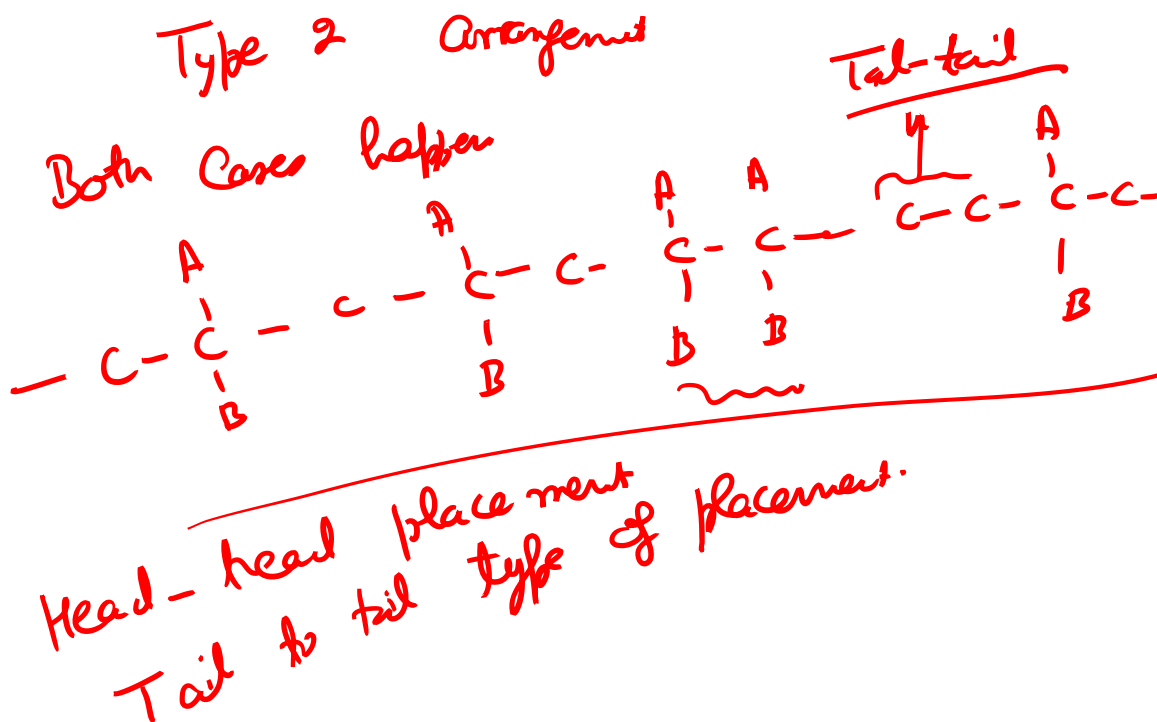 Type 2 arrangemut
Tal-tail
Both Cases happen
A A A A A
— C - C — C — C — C - C - C — C - C - C - C -
B B B B B
Head-head placement
Tail to tail type of placement.